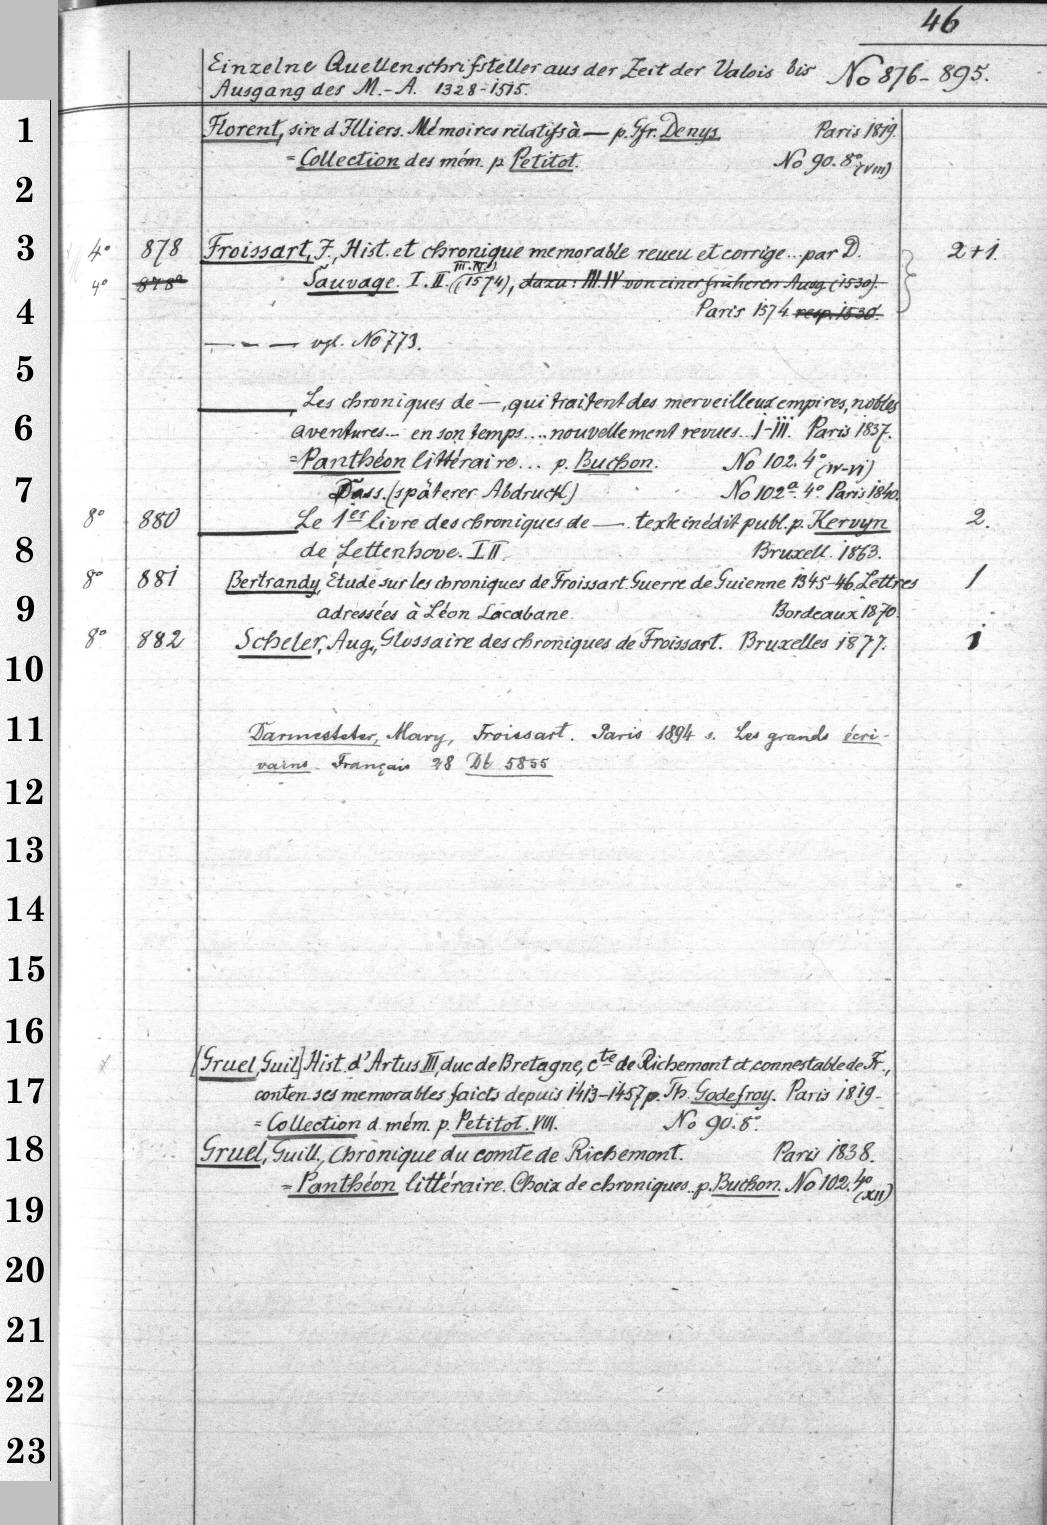 46
Einzelne Quellenschriftsteller aus der Zeit der Valois bis No 876-895.
Ausgang des M.-A. 1328-1515.
1 Florent, sire d'Illiers. Mémoires rélatifs à — p. Ffr. Denys Paris 1819.
= Collection des mém. p. Petitot. No 90. 8° (VIII)
2
3 4° 878 Froissart, J., Hist. et chronique memorable reveu et corrige... par D. 2+1.
4° 878a Sauvage. I. II. III. IV. (1574), dazu: III. IV von einer früheren Ausg. (1530).
4 Paris 1574 resp. 1530.
— — — vgl. No 773.
5
Les chroniques de —, qui traitent des merveilleux empires, nobles
6 aventures... en son temps.... nouvellement revues.. I-III. Paris 1837.
= Panthéon littéraire... p. Buchon. No 102. 4° (IV-VI)
7 Dass. (späterer Abdruck) No 102a. 4° Paris 1840.
8° 880 Le 1er livre des chroniques de —. texte inédit publ. p. Kervyn 2.
8 de Lettenhove. I II. Bruxell. 1863.
8° 881 Bertrandy, Étude sur les chroniques de Froissart. Guerre de Guienne 1345-46. Lettres 1
9 adressées à Léon Lacabane. Bordeaux 1870.
8° 882 Scheler, Aug., Glossaire des chroniques de Froissart. Bruxelles 1877. 1
10
11 Darmesteter, Mary, Froissart. Paris 1894 s. Les grands écri-
vains Français 28 Db 5855
12
13
14
15
16
[Gruel, Guil.] Hist. d'Artus III, duc de Bretagne, cte de Richemont et connestable de Fr.,
17 conten. ses memorables faicts depuis 1413-1457 p. Th. Godefroy. Paris 1819.
= Collection d. mém. p. Petitot. VIII. No 90. 8°.
18 Gruel, Guill., Chronique du comte de Richemont. Paris 1838.
= Panthéon littéraire. Choix de chroniques.. p. Buchon. No 102. 4° (XII)
19
20
21
22
23